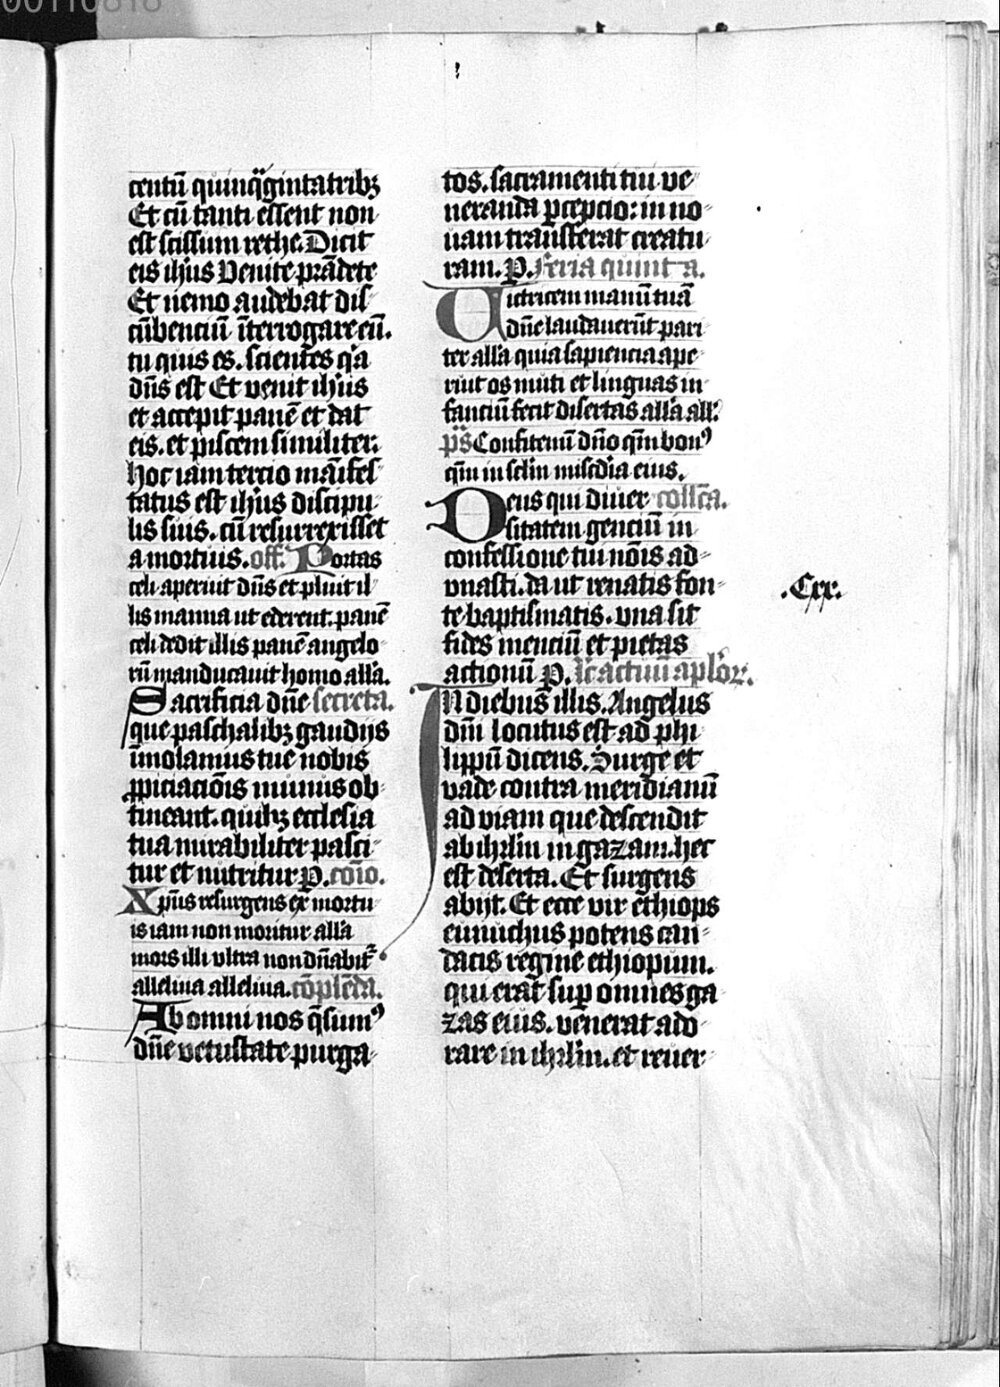 centū quinq̄gintatribꝫ
Et cū tanti essent non
est scissum rethe. Dicit
eis ih̄us Venite prādete
Et nemo audebat dis-
cūbenciū īterrogare eū.
tu quis es. scientes q̄a
dn̄s est Et venit ih̄us
et accepit panē et dat
eis. et piscem similiter.
Hoc iam tercio māifes-
tatus est ih̄us discipu-
lis suis. cū resurrexisset
a mortuis. off. Portas
celi aperuit dn̄s et pluit il-
lis manna ut ederent. panē
celi dedit illis panē angelo-
rū manducauit homo all'a.
Sacrificia dn̄e secreta.
que paschalibꝫ gaudijs
īmolamus tue nobis
ꝓpiciacōis munus ob-
tineant. quibꝫ ecclesia
tua mirabiliter pasci-
tur et nutritur P. cōio.
Xp̄us resurgens ex mortu-
is iam non moritur all'a
mors illi vltra non dn̄abit᷑
alleluia alleluia. cōplēda.
Ab omni nos q̄sumꝰ
dn̄e vetustate purga-
tos. sacramenti tui ve-
neranda ꝑcepcio: in no-
uam trāsferat creatu-
ram. P. Feria quinta.
Uictricem manū tuā
dn̄e laudauerūt pari-
ter all'a quia sapiencia ape-
ruit os muti et linguas in-
fanciū fecit disertas all'a all'.
p̄s Confitemī dn̄o qm̄ bonꝰ
qm̄ in sclm̄ mis'dia eius.
Deus qui diuer- coll'ca.
sitatem genciū in
confessione tui nōis ad-
vnasti. da ut renatis fon-
te baptismatis. vna sit
fides menciū et pietas
actionū P. l'c actuū ap'lor'.
.Cxx.
In diebus illis. Angelus
dn̄i locutus est ad phi-
lippū dicens. Surge et
vade contra meridianū
ad viam que descendit
ab ihrl'm in gazam. hec
est deserta. Et surgens
abijt. Et ecce vir ethiops
eunuchus potens can-
dacis regine ethiopum.
qui erat sup̄ omnes ga-
zas eius. venerat ado-
rare in ihrl'm. et reuer-